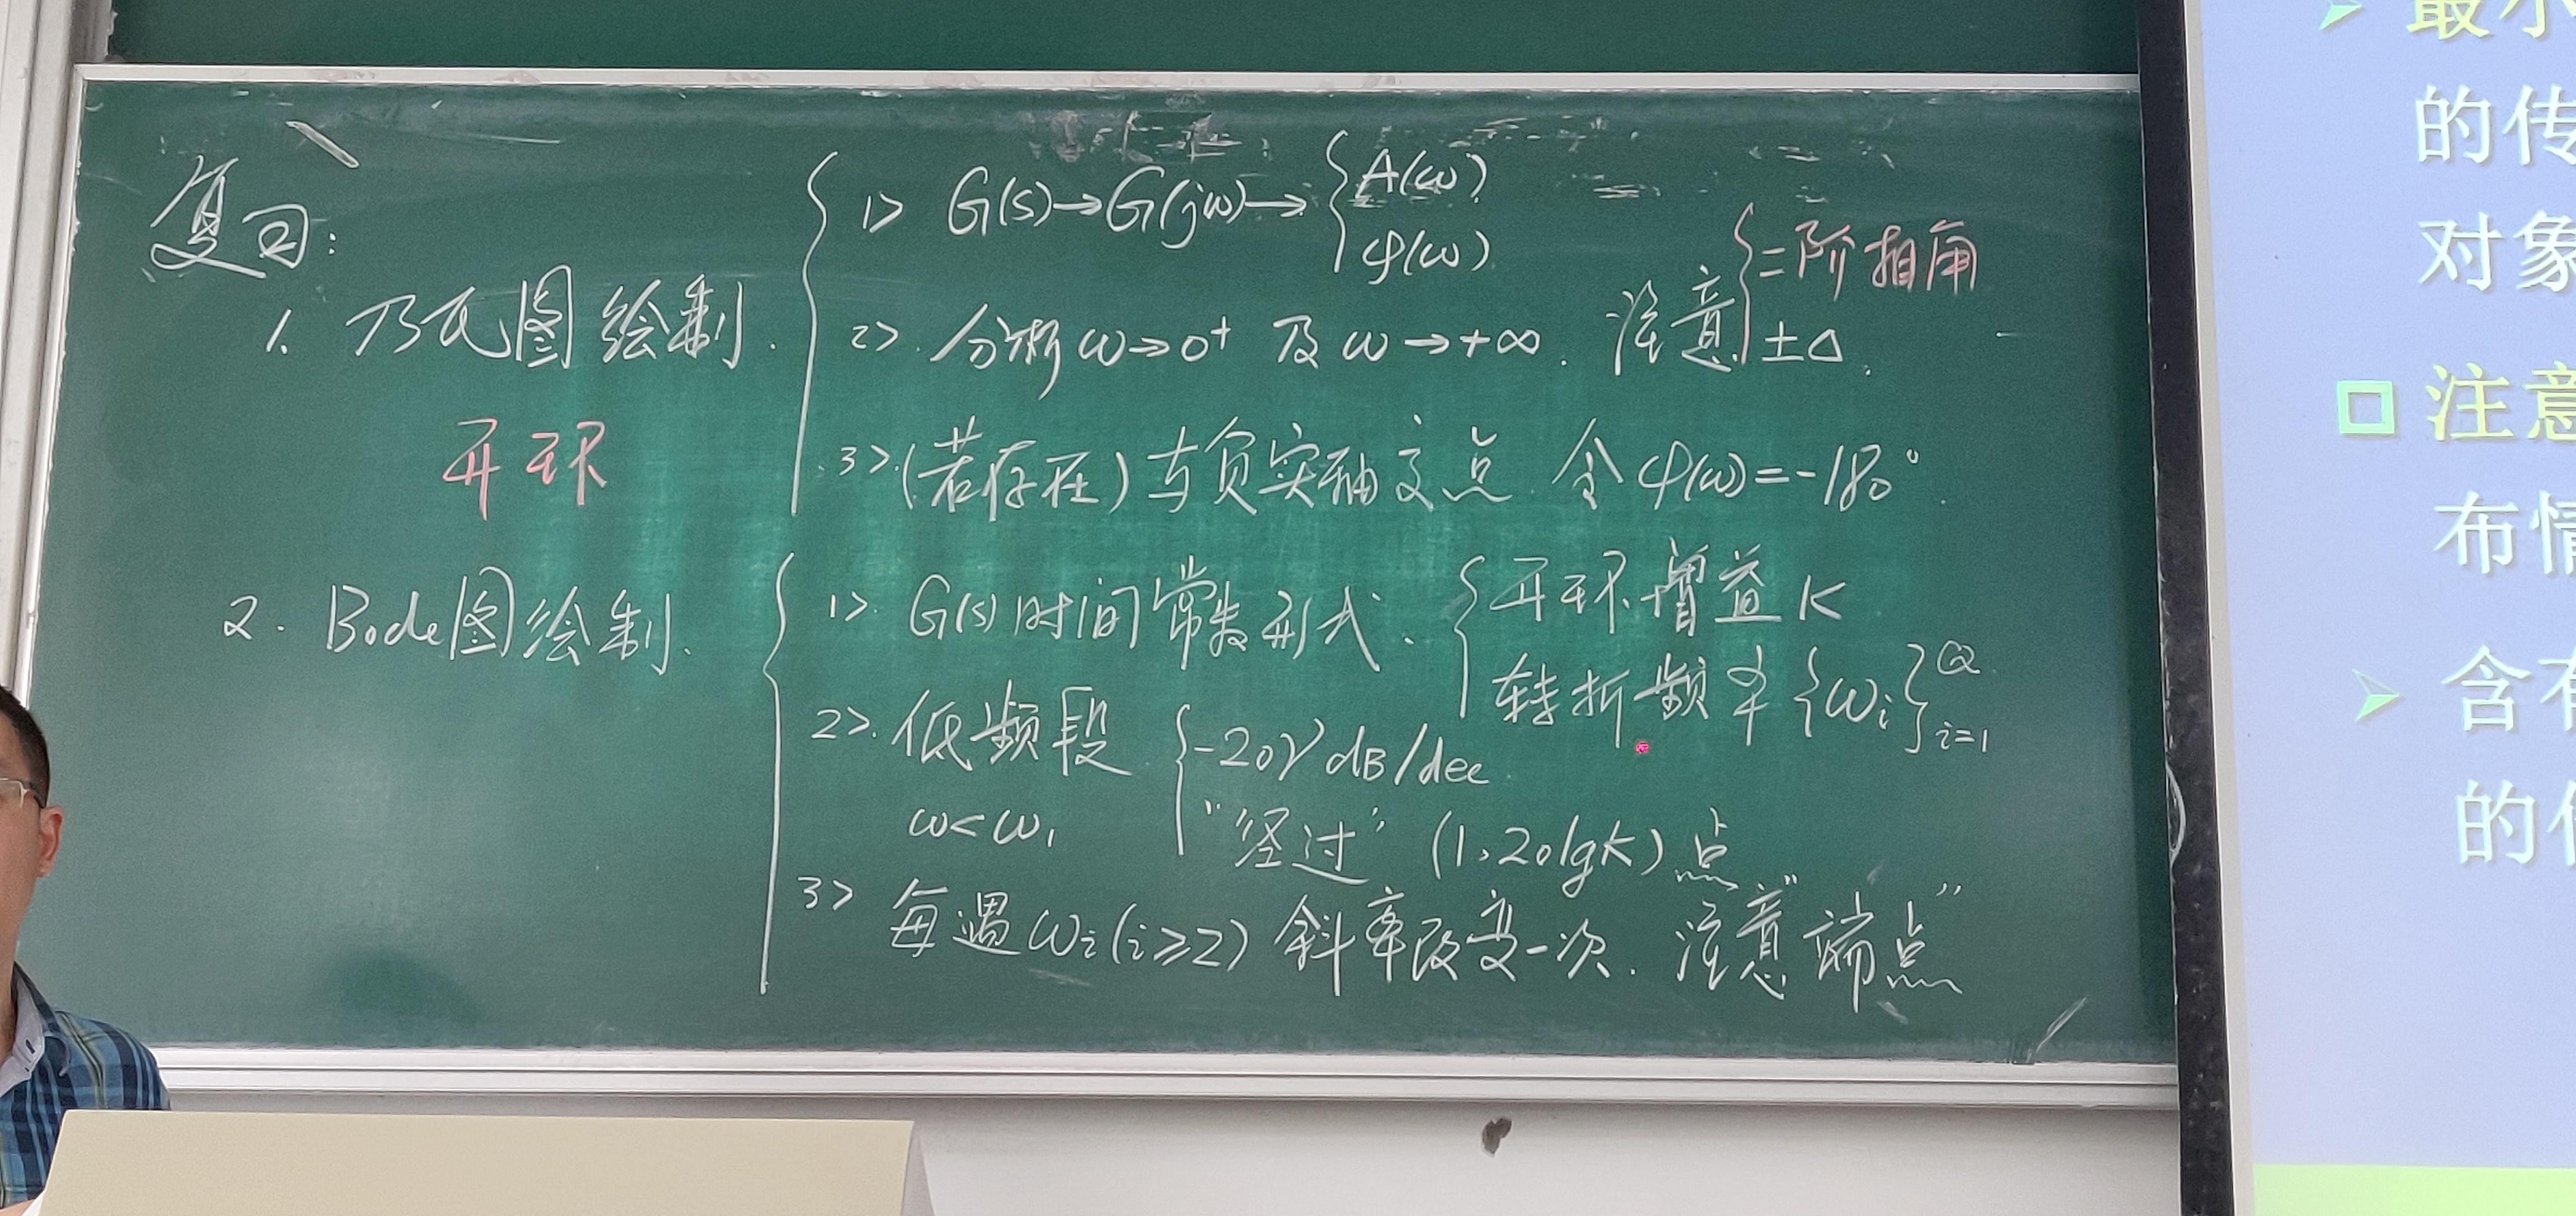 复习:
1. 乃氏图绘制.
开环
1> G(s)→G(jω)→{A(ω)
φ(ω)
2>. 分析ω→0⁺ 及 ω→+∞. 注意{二阶相角
±Δ.
3>.(若存在)与负实轴交点 令φ(ω)=-180°.
2. Bode图绘制.
1>. G(s)时间常数形式. {开环增益K
转折频率{ωᵢ}ᵢ₌₁^Q
2>. 低频段 {-20γdB/dec
ω<ω₁ "经过"(1,20lgK)点
3> 每遇ωᵢ(i≥2)斜率改变一次. 注意"端点"
最小
的传
对象
注意
布情
含有
的传